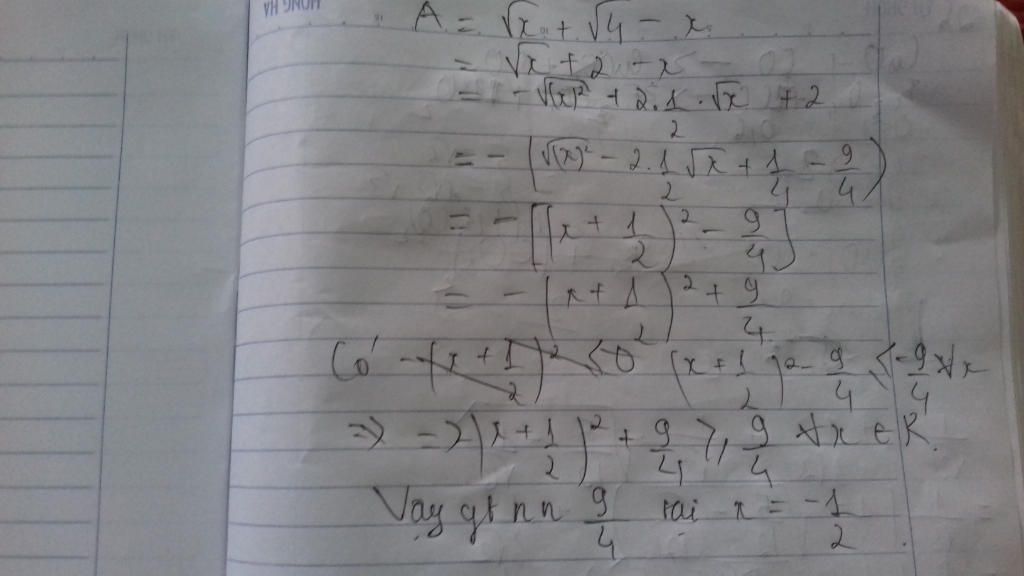 HONG HA
A = √x + √4 - x
= √x + 2 - x
= - √(x)² + 2.1/2 . √x + 2
= - (√(x)² - 2.1/2 √x + 1/4 - 9/4)
= - [(x + 1/2)² - 9/4]
= - (x + 1/2)² + 9/4
Có -(x + 1/2)² ≤ 0 (x + 1/2)² - 9/4 ≤ -9/4 ∀x
=> => (x + 1/2)² + 9/4 ≥ 9/4 ∀x ∈ R.
Vậy gt nn 9/4 tại x = -1/2.